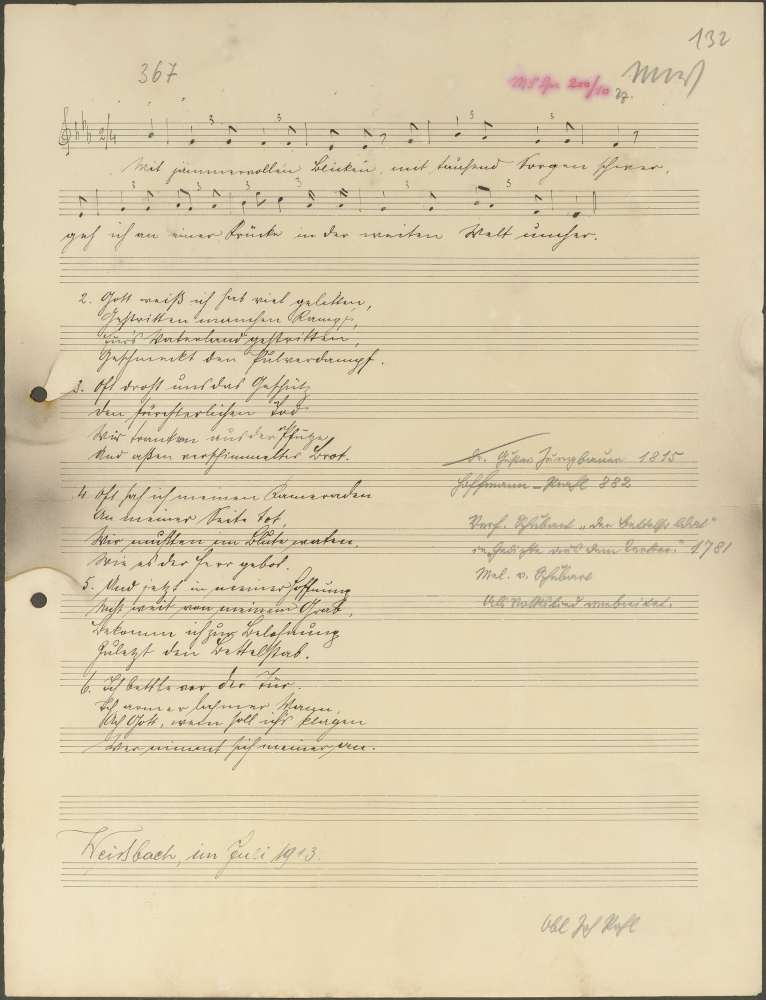 132
367
Mit jammervollen Blicken, mit tausend Sorgen schwer,
geh ich an einer Krücke in der weiten Welt umher.
2. Gott weiß ich hab viel gelitten,
Gestritten manchen Kampf,
Fürs Vaterland gestritten,
Geschmeckt den Pulverdampf.
3. Oft droht uns das Geschütz
Den fürchterlichen Tod
Wir tranken aus der Pfütze
Und aßen verschimmeltes Brot.
4. Oft sah ich meinen Kameraden
An meiner Seite tot,
Wir mußten im Blute waten,
Wie es der Herr gebot.
5. Und jetzt in meiner Hoffnung
Nicht weit von meinem Grab,
Bekomm ich zur Belohnung
Zuletzt den Bettelstab.
6. Ich bettle vor der Tür.
Ich armer lahmer Mann,
Ach Gott, wem soll ichs klagen
Wer nimmt sich meiner an.
Jungbauer 1815
Hoffmann-Prahl 882
Verf. Schubart „Der Bettelsoldat"
aus dem Kerker." 1781
Mel. v. Schubart
Als Volkslied verbreitet.
Weissbach, im Juli 1913.